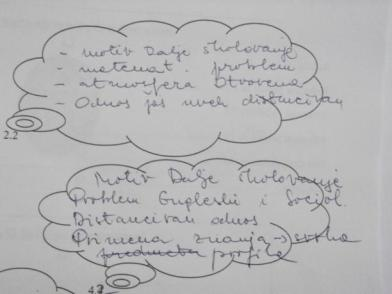 - motiv Dalje školovanje
- matemat. problem
- atmosfera otvorena
- Odnos još uvek distanciran
2.2
Motiv Dalje školovanje
Problem Engleski i Sociol.
Distanciran odnos
Primena znanja → svrha
predmeta profila
4.3